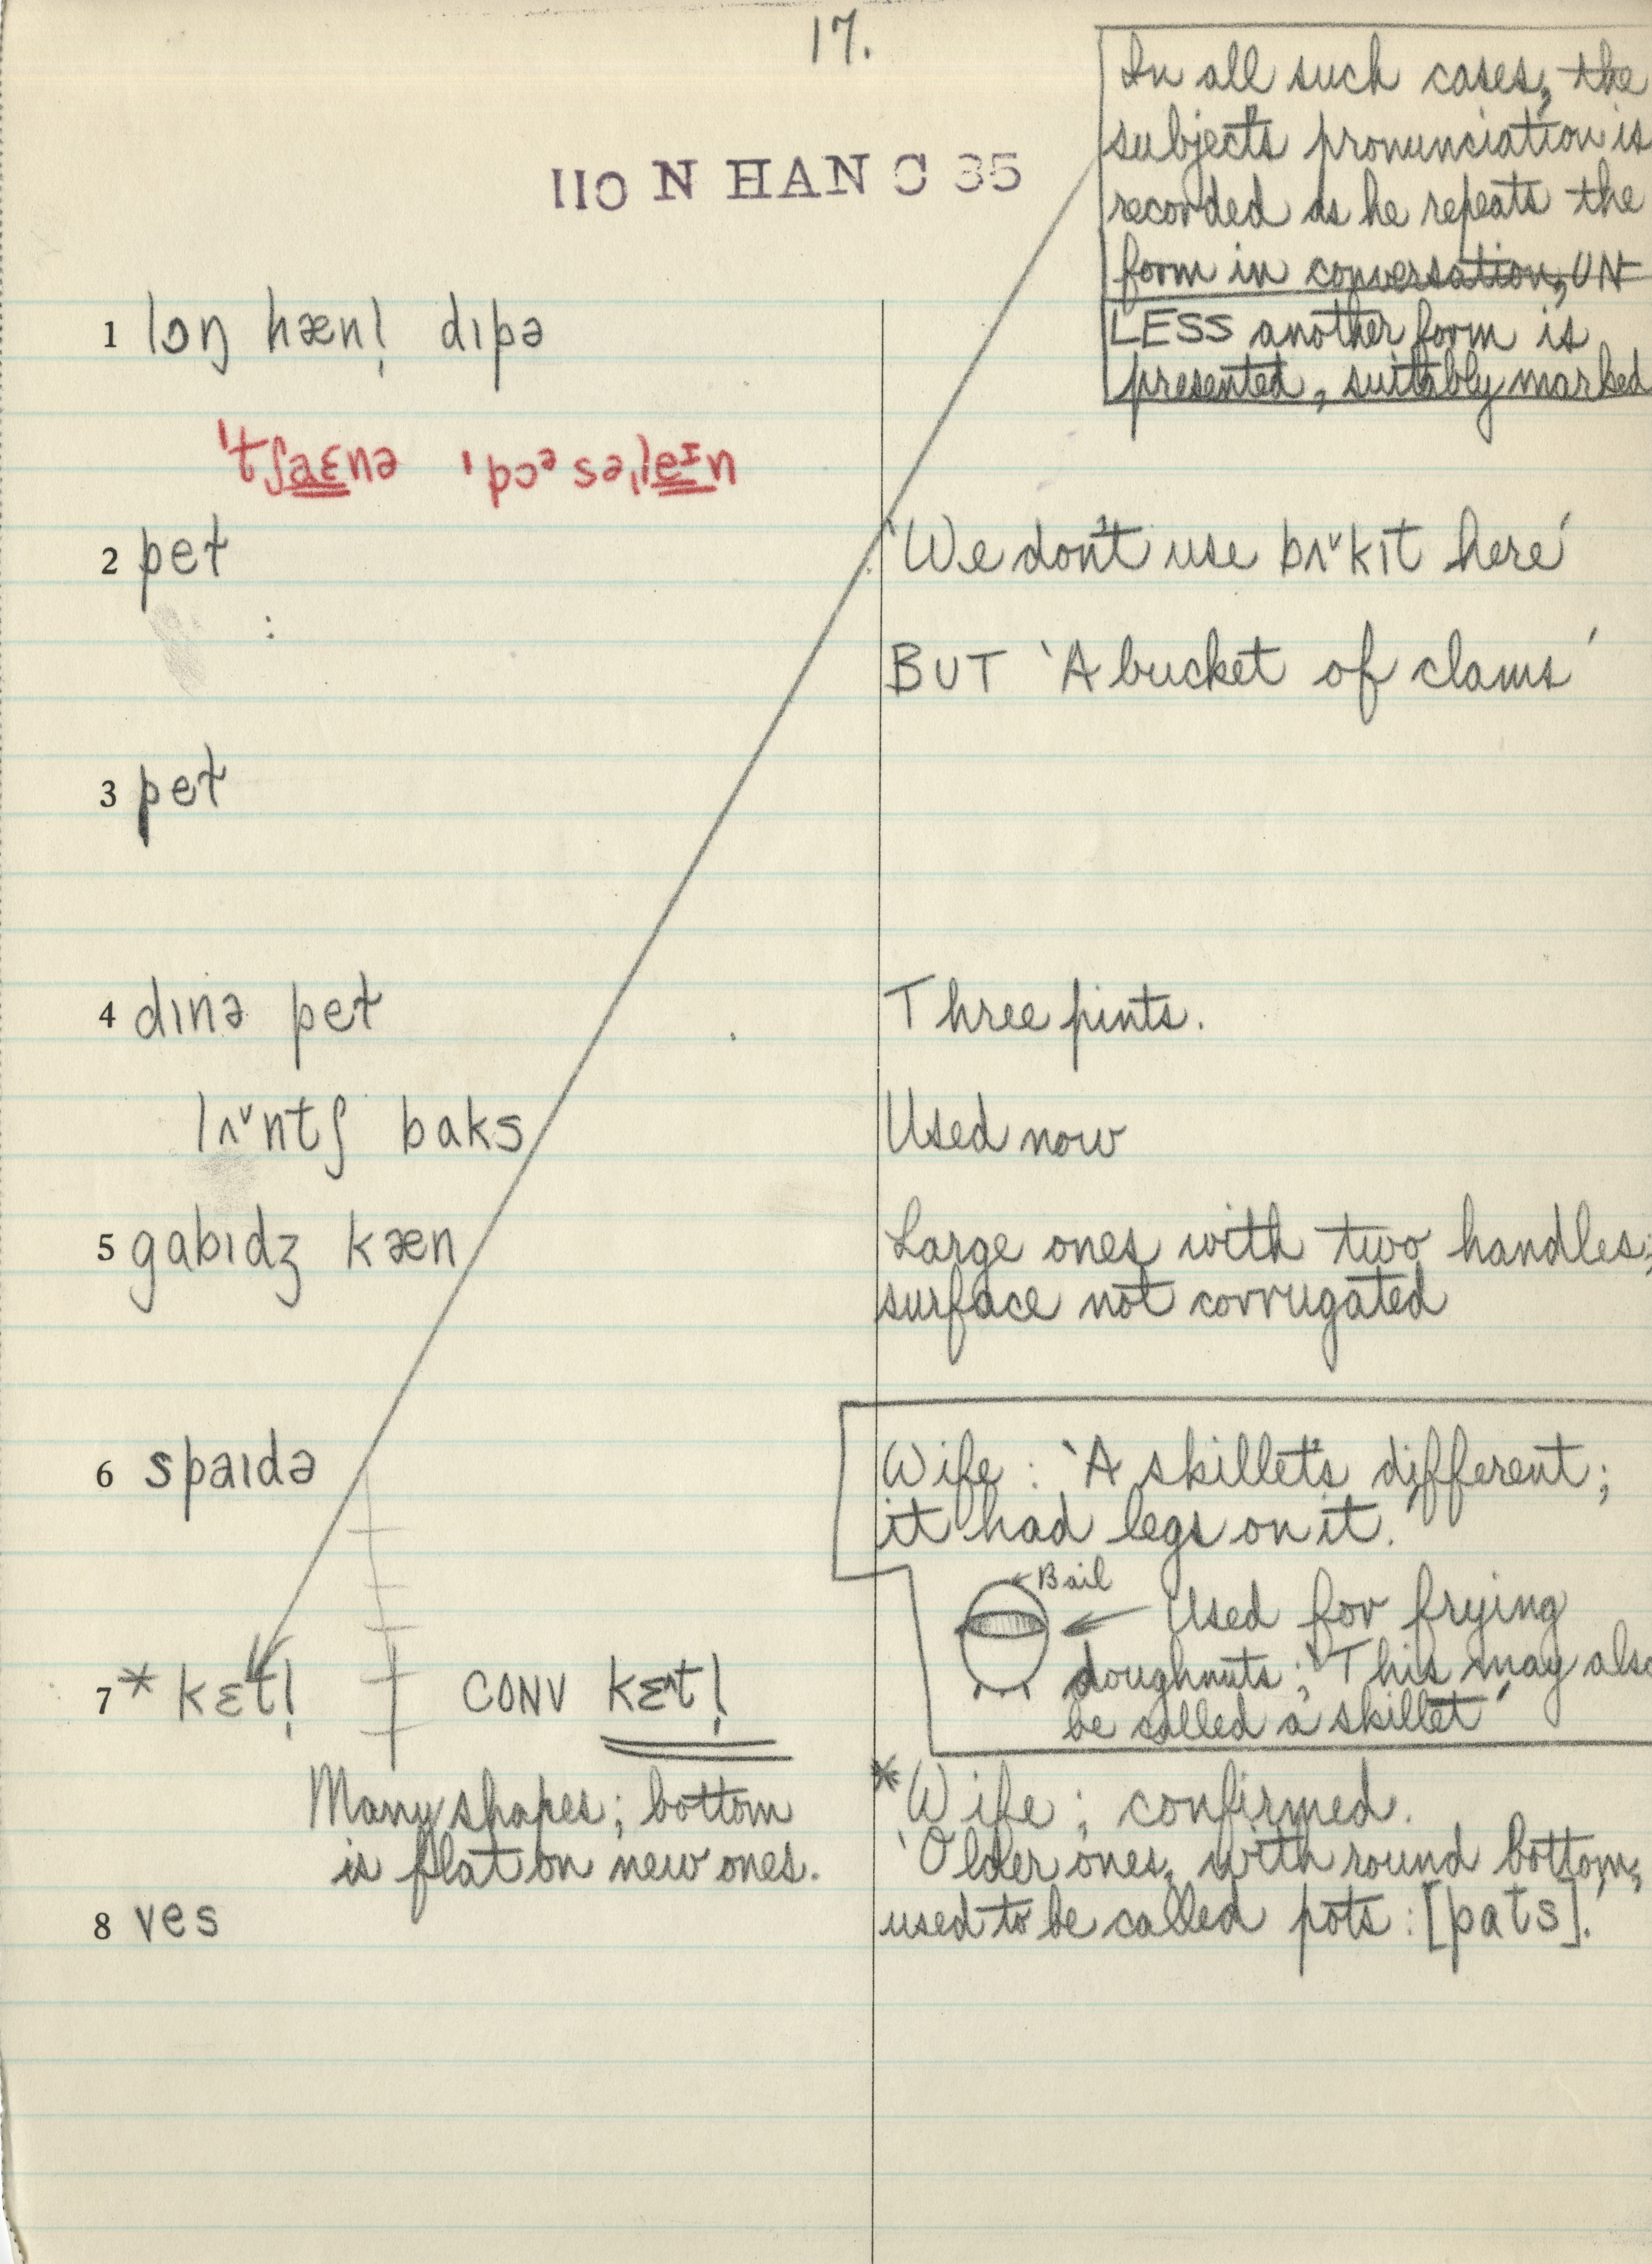 17.
110 N HAN C 35
In all such cases, the
subject's pronunciation is
recorded as he repeats the
form in conversation, UN-
LESS another form is
presented, suitably marked
1 lɔŋ hæn! dɪpə
2 pet
'We don't use bʌ˅kɪt here'
BUT 'A bucket of clams'
3 pet
4 dɪnə pet
Three pints.
lʌ˅ntʃ baks
Used now
5 gabɪdʒ kæn
Large ones with two handles;
surface not corrugated
6 spaɪdə
Wife: 'A skillet's different;
it had legs on it.'
Bail
Used for frying
doughnuts; 'This may also
be called a skillet'
7 * kɛt! CONV kɛt!
Many shapes; bottom
is flat on new ones.
* Wife: confirmed.
'Older ones, with round bottom,
used to be called pots: [pats].'
8 ves